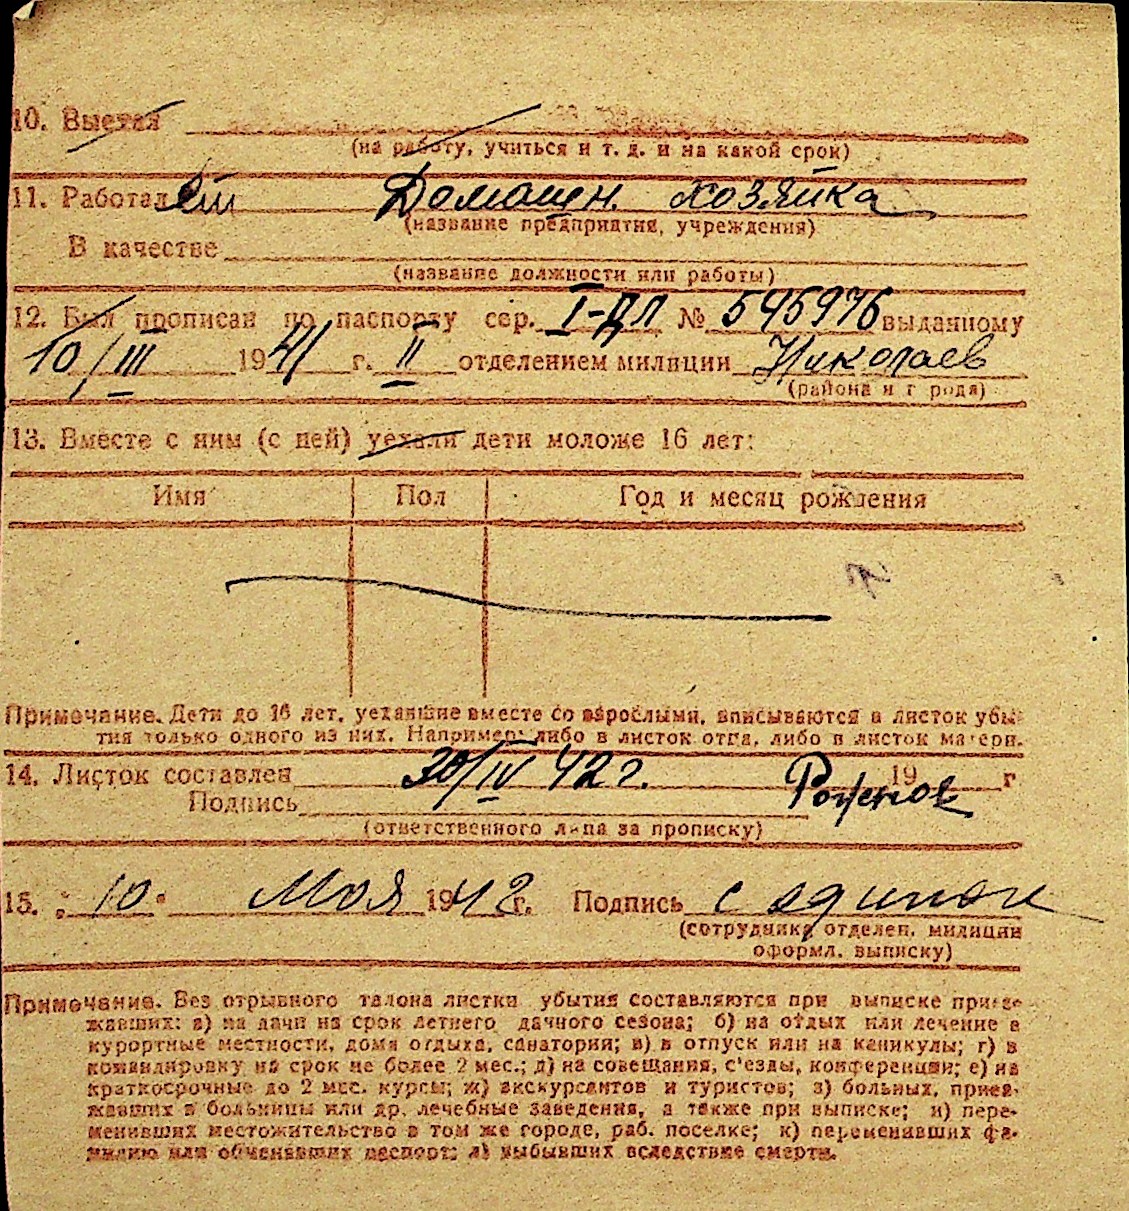 10. Выехал
(на работу, учиться и т. д. и на какой срок)
11. Работал ет Домашн. хозяйка
(название предприятия, учреждения)
В качестве
(название должности или работы)
12. Был прописан по паспорту сер. I-ДЛ № 545976 выданному
10/III 1941 г. II отделением милиции Николаев
(района и города)
13. Вместе с ним (с ней) уехали дети моложе 16 лет:
Имя Пол Год и месяц рождения
Примечание. Дети до 16 лет, уехавшие вместе со взрослыми, вписываются в листок убы-
тия только одного из них. Например: либо в листок отца, либо в листок матери.
14. Листок составлен 30/IV 42 г. 19 г
Подпись
(ответственного лица за прописку)
15. "10" Мая 1942 г. Подпись
(сотрудника отделен. милиции
оформл. выписку)
Примечание. Без отрывного талона листки убытия составляются при выписке приез-
жавших: а) на дачи на срок летнего дачного сезона; б) на отдых или лечение в
курортные местности, дома отдыха, санатории; в) в отпуск или на каникулы; г) в
командировку на срок не более 2 мес.; д) на совещания, с'езды, конференции; е) на
краткосрочные до 2 мес. курсы; ж) экскурсантов и туристов; з) больных, приез-
жавших в больницы или др. лечебные заведения, а также при выписке; и) пере-
менивших местожительство в том же городе, раб. поселке; к) переменивших фа-
милию или обменявших паспорт; л) выбывших вследствие смерти.